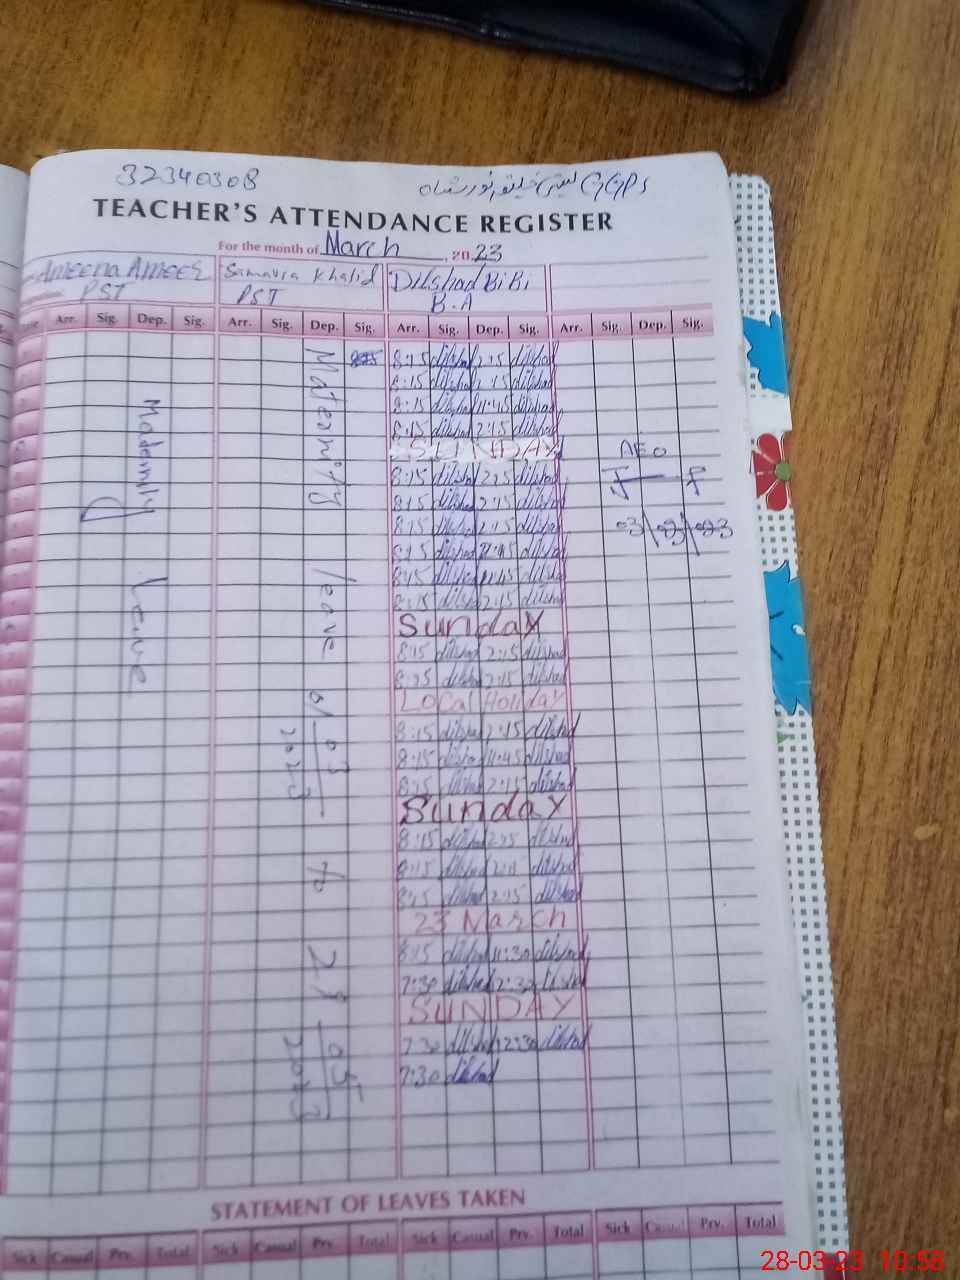 32340308 GGPS
TEACHER'S ATTENDANCE REGISTER
For the month of March, 2023
Ameena Ameer Samavia Khalid Dilshad BiBi
PST PST B.A
Arr. Sig. Dep. Sig. Arr. Sig. Dep. Sig. Arr. Sig. Dep. Sig. Arr. Sig. Dep. Sig.
Maternity leave
Maternity leave 01/03 2023 to 29 05 2023
8:15 dilshad 2:15 dilshad
8:15 dilshad 2:15 dilshad
8:15 dilshad 11:45 dilshad
8:15 dilshad 2:15 dilshad
SUNDAY
8:15 dilshad 2:15 dilshad
8:15 dilshad 2:15 dilshad
8:15 dilshad 2:15 dilshad
8:15 dilshad 11:45 dilshad
8:15 dilshad 11:45 dilshad
8:15 dilshad 2:15 dilshad
Sunday
8:15 dilshad 2:15 dilshad
8:15 dilshad 2:15 dilshad
Local Holiday
8:15 dilshad 2:15 dilshad
8:15 dilshad 11:45 dilshad
8:15 dilshad 2:15 dilshad
Sunday
8:15 dilshad 2:15 dilshad
8:15 dilshad 2:15 dilshad
8:15 dilshad 2:15 dilshad
23 March
8:15 dilshad 11:30 dilshad
7:30 dilshad 12:30 dilshad
SUNDAY
7:30 dilshad 12:30 dilshad
7:30 dilshad
AEO
03/03/023
STATEMENT OF LEAVES TAKEN
Sick Casual Prv. Total Sick Casual Prv. Total Sick Casual Prv. Total Sick Casual Prv. Total
28-03-23 10:58